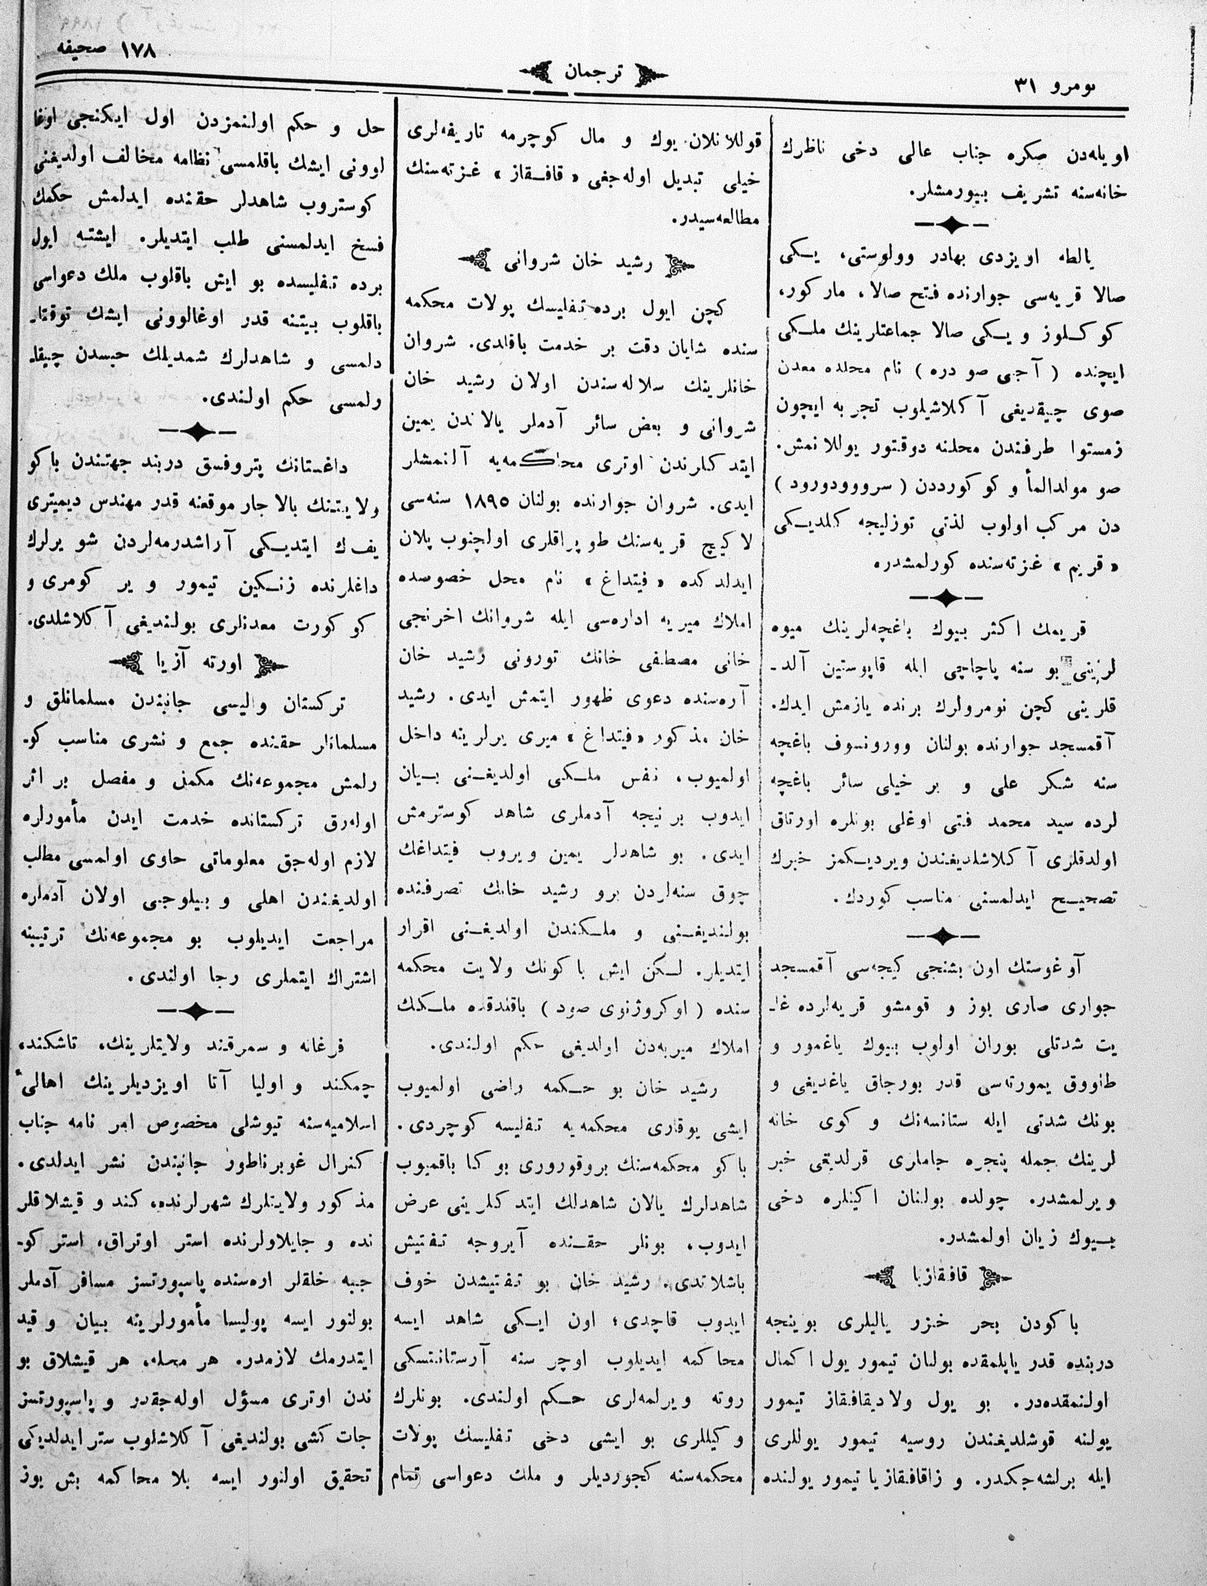 نومرو ٣١
ترجمان
١٧٨ صحیفه
اویله‌دن صكره جناب عالی دخی ناظرك
خانه‌سنه تشریف بیورمشلر.
یالطه اویزدی بهادر وولوستی، یـكی
صالا قریه‌سی جوارنده فتح صالا، ماركور،
كوكـلوز ویـكی صالا جماعتارینك ملـكی
ایچنده (آجی صو دره) نام محلده معدن
صوی چیقدیغی آكلاشیلوب تجربه ایچون
زمستوا طرفندن محلنه دوقتور یوللانمش.
صو مولدالمأ و كوكورددن (سرووودورود)
دن مركب اولوب لذتی توزلیجه كلدیـكی
«قریم» غزته‌سنده كورلمشدر.
قریمك اكثر بیوك باغچه‌لرینك میوه
لرینی بو سنه پاچاچی ایله قاپوستین آلد‌ـ
قلرینی كچن نومرولرك برنده یازمش ایدك.
آقمسجد جوارنده بولنان وورونسوف باغچه
سنه شكر علی و بر خیلی سائر باغچه
لرده سید محمد فتی اوغلی بونلره اورتاق
اولدقلری آكلاشلدیغندن ویردیـكمز خبرك
تصحیـح ایدلمسنی مناسب كوردك.
آوغوستك اون بشنجی كیجه‌سی آقمسجد
جواری صاری بوز و قومشو قریه‌لرده غا‌ـ
یت شدتلی بوران اولوب بیوك یاغمور و
طاووق یمورته‌سی قدر بورجاق یاغدیغی و
بونك شدتی ایله ستانسه‌نك و كوی خانه
لرینك جمله پنجره جاملری قرلدیغی خبر
ویرلمشدر. چولده بولنان اكینلره دخی
بیوك زیان اولمشدر.
قافقازیا
باكودن بحر خزر یالیلری بوینجه
دربنده قدر یاپلمقده بولنان تیمور یول اكمال
اولنمقده‌در. بو یول ولادیقافقاز تیمور
یولنه قوشلدیغندن روسیه تیمور یوللری
ایله برلشه‌جكدر. و زاقافقازیا تیمور یولنده
قوللانلان یوك و مال كوچرمه تاریفه‌لری
خیلی تبدیل اوله‌جغی «قافـقاز» غـزته‌سنك
مطالعه‌سیدر.
رشید خان شروانی
كچن ایول برده تفلیسك پولات محكمه
سنده شایان دقت بر خدمت باقلدی. شروان
خانلرینك سلاله‌سندن اولان رشید خان
شروانی و بعض سائر آدملر یالاندن یمین
ایتدكلرندن اوتری محاكمه‌یه آلنمشلر
ایدی. شروان جوارنده بولنان ١٨٩٥ سنه‌سی
لاكیچ قریه‌سنك طوپراقلری اولچنوب پلان
ایدلدكده «فیتداغ» نام محل خصوصده
املاك میریه اداره‌سی ایله شروانك اخرنجی
خانی مصطفی خانك تورونی رشید خان
آره‌سنده دعوی ظهور ایتمش ایدی. رشید
خان مذكور «فیتداغ» میری یرلرینه داخل
اولمیوب، نفس ملـكی اولدیغـنی بـیان
ایدوب بر نیجه آدملری شاهد كوسترمش
ایدی. بو شاهدلر یمین ویروب فیتداغك
چوق سنه‌لردن برو رشید خانك تصرفنده
بولندیغـنی و ملـكندن اولدیغـنی اقرار
ایتدیلر. لـكن ایش باكونك ولایت محكمه
سنده (اوكروژنوی صود) باقلدقده ملـكك
املاك میریه‌دن اولدیغی حكم اولندی.
رشید خان بو حـكمه راضی اولمیوب
ایشی یوقاری محكمه‌یه تفلیسه كوچردی.
باكو محكمه‌سنك پروقوروری بوكا باقمیوب
شاهدلرك یالان شاهدلك ایتدكلرینی عرض
ایدوب، بونلر حقـنده آیروجه تـفتیش
باشلاتدی. رشید خان بو تـفتیشدن خوف
ایدوب قاچدی؛ اون ایـكی شاهد ایسه
محاكمه ایدیلوب اوچر سنه آرستانتسكی
روته ویرلمه‌لری حـكم اولندی. بونلرك
وكیللری بو ایشی دخی تفلیسك پولات
محكمه‌سنه كچوردیلر و ملك دعواسی تمام
حل و حكم اولنمزدن اول ایكنجی اوغا
لوونی ایشك باقلمسی نظامه مخالف اولدیغنی
كوستروب شاهدلر حقنده ایدلمش حكمك
فسخ ایدلمسنی طلب ایتدیلر. ایشته ایول
برده تفلیسده بو ایش باقلوب ملك دعواسی
باقلوب بیتنه قدر اوغالوونی ایشك توقتا‌ـ
دلمسی و شاهدلرك شمدیلك حبسدن چیقا‌ـ
رلمسی حكم اولندی.
داغستانك پتروفسق دربند جهتندن باكو
ولایـتنك بالاجار موقعنه قدر مهندس دیمیتری
یف‌ك ایتدیـكی آراشدرمه‌لردن شو یرلرك
داغلرنده زنـكین تیمور و یر كومری و
كوكورت معدنلری بولندیغی آكلاشلدی.
اورته آزیا
تركستان والیسی جانبندن مسلمانلق و
مسلمانلر حقنده جمع و نشری مناسب كو‌ـ
رلمش مجموعه‌نك مكمل و مفصل بر اثر
اوله‌رق تركستانده خدمت ایدن مأمورلره
لازم اوله‌جق معلوماتی حاوی اولمسی مطلب
اولدیغندن اهلی و بیلوجی اولان آدملره
مراجعت ایدیلوب بو مجموعه‌نك ترتیبنه
اشتراك ایتملری رجا اولندی.
فرغانه و سمرقند ولایتلرینك، تاشكند،
چمكند و اولیا آتا اویزدیلرینك اهالیٔ
اسلامیه‌سنه تیوشلی مخصوص امر نامه جناب
كنرال غوبرناطور جانبندن نشر ایدلدی.
مذكور ولایتلرك شهرلرنده، كند و قیشلاقلر
نده و جایلاولرنده استر اوتراق، استر كو‌ـ
چبه خلقلر اره‌سنده پاسپورتسز مسافر آدملر
بولنور ایسه پولیسا مأمورلرینه بیان و قید
ایتدرمك لازمدر. هر محله، هر قیشلاق بو
ندن اوتری مسؤل اوله‌جقدر و پاسپورتسز
جات كشی بولندیغی آكلاشلوب ستر ایدلدیكی
تحقیق اولنور ایسه بلا محاكمه بش یوز